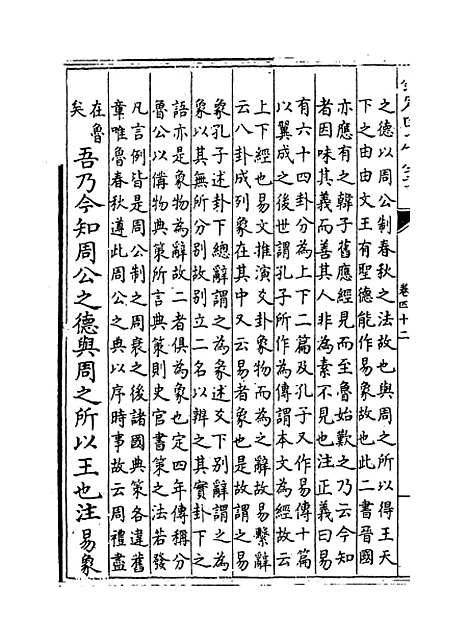 之德以周公制春秋之法故也與周之所以得王天
下之由由文王有聖德能作易象故也此二書晉國
亦應有之韓子舊應經見而至魯始歎之乃云今知
者因味其義而善其人非為素不見也注正義曰易
有六十四卦分為上下二篇及孔子又作易傳十篇
以翼成之後世謂孔子所作為傳謂本文為經故云
上下經也易文推演爻卦象物而為之辭故易繫辭
云八卦成列象在其中又云易者象也是故謂之易
象孔子述卦下總辭謂之為彖述爻下別辭謂之為
象以其無所分別故別立二名以辨之其實卦下之
語亦是象物為辭故二者俱為象也定四年傳稱分
魯公以備物典策所言典策則史官書策之法若發
凡言例皆是周公制之周衰之後諸國典策各違舊
章唯魯春秋遵此周公之典以序時事故云周禮盡
在魯矣 吾乃今知周公之德與周之所以王也注易象
卷四十二